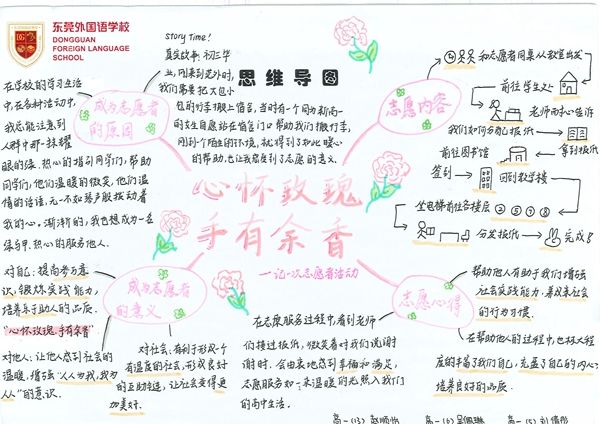 东莞外国语学校
DONGGUAN
FOREIGN LANGUAGE
SCHOOL
思维导图
心怀玫瑰
手有余香
—记一次志愿者活动
成为志愿者
的原因
Story Time!
真实故事:初三毕
业,刚来到莞外时,
我们需要把大包小
包的行李搬上宿舍,当时有一个同为新高一
的女生自愿站在宿舍门口帮助我们搬行李,
刚到个陌生的环境,就得到了如此暖心
的帮助,也让我感受到了志愿的意义。
在学校的学习生活
中,在各种活动中,
我总能注意到
人群中那一抹耀
眼的绿。热心的指引同学们,帮助
同学们,他们温暖的微笑,他们温
情的话语,无一不如琴声般拨动着
我的心。渐渐的,我也想成为一名
绿马甲,热心的服务他人。
志愿内容
和志愿者同桌从教室出发
前往学生处
老师耐心告诉
我们如何分自己报纸
拿到报纸
前往图书馆
签到
回到教学楼
坐电梯前往各楼层
②⑤⑦⑧
分发报纸
完成了
成为志愿者
的意义
对自己:提高参与意
识,锻炼实践能力,
培养乐于助人的品质。
"心怀玫瑰,手有余香"
对他人:让他人感到社会的
温暖,增强"人人为我,我为
人人"的意识。
对社会:有利于形成一个
有温度的社会,形成良好
的互助氛围,让社会变得更
加美好。
志愿心得
帮助他人有助于我们增强
社会实践能力,养成来社会
的行为习惯。
在帮助他人的过程中,也极大程
度的丰富了我们自己,充盈了自己的内心,
培养良好的品质。
在志愿服务过程中,看到老师
们接过报纸,微笑着对我们说谢
谢时,会由衷地感到幸福和满足,
志愿服务如一束温暖的光照入我们
的高中生活。
高一(13)
高一(6)
高一(5)